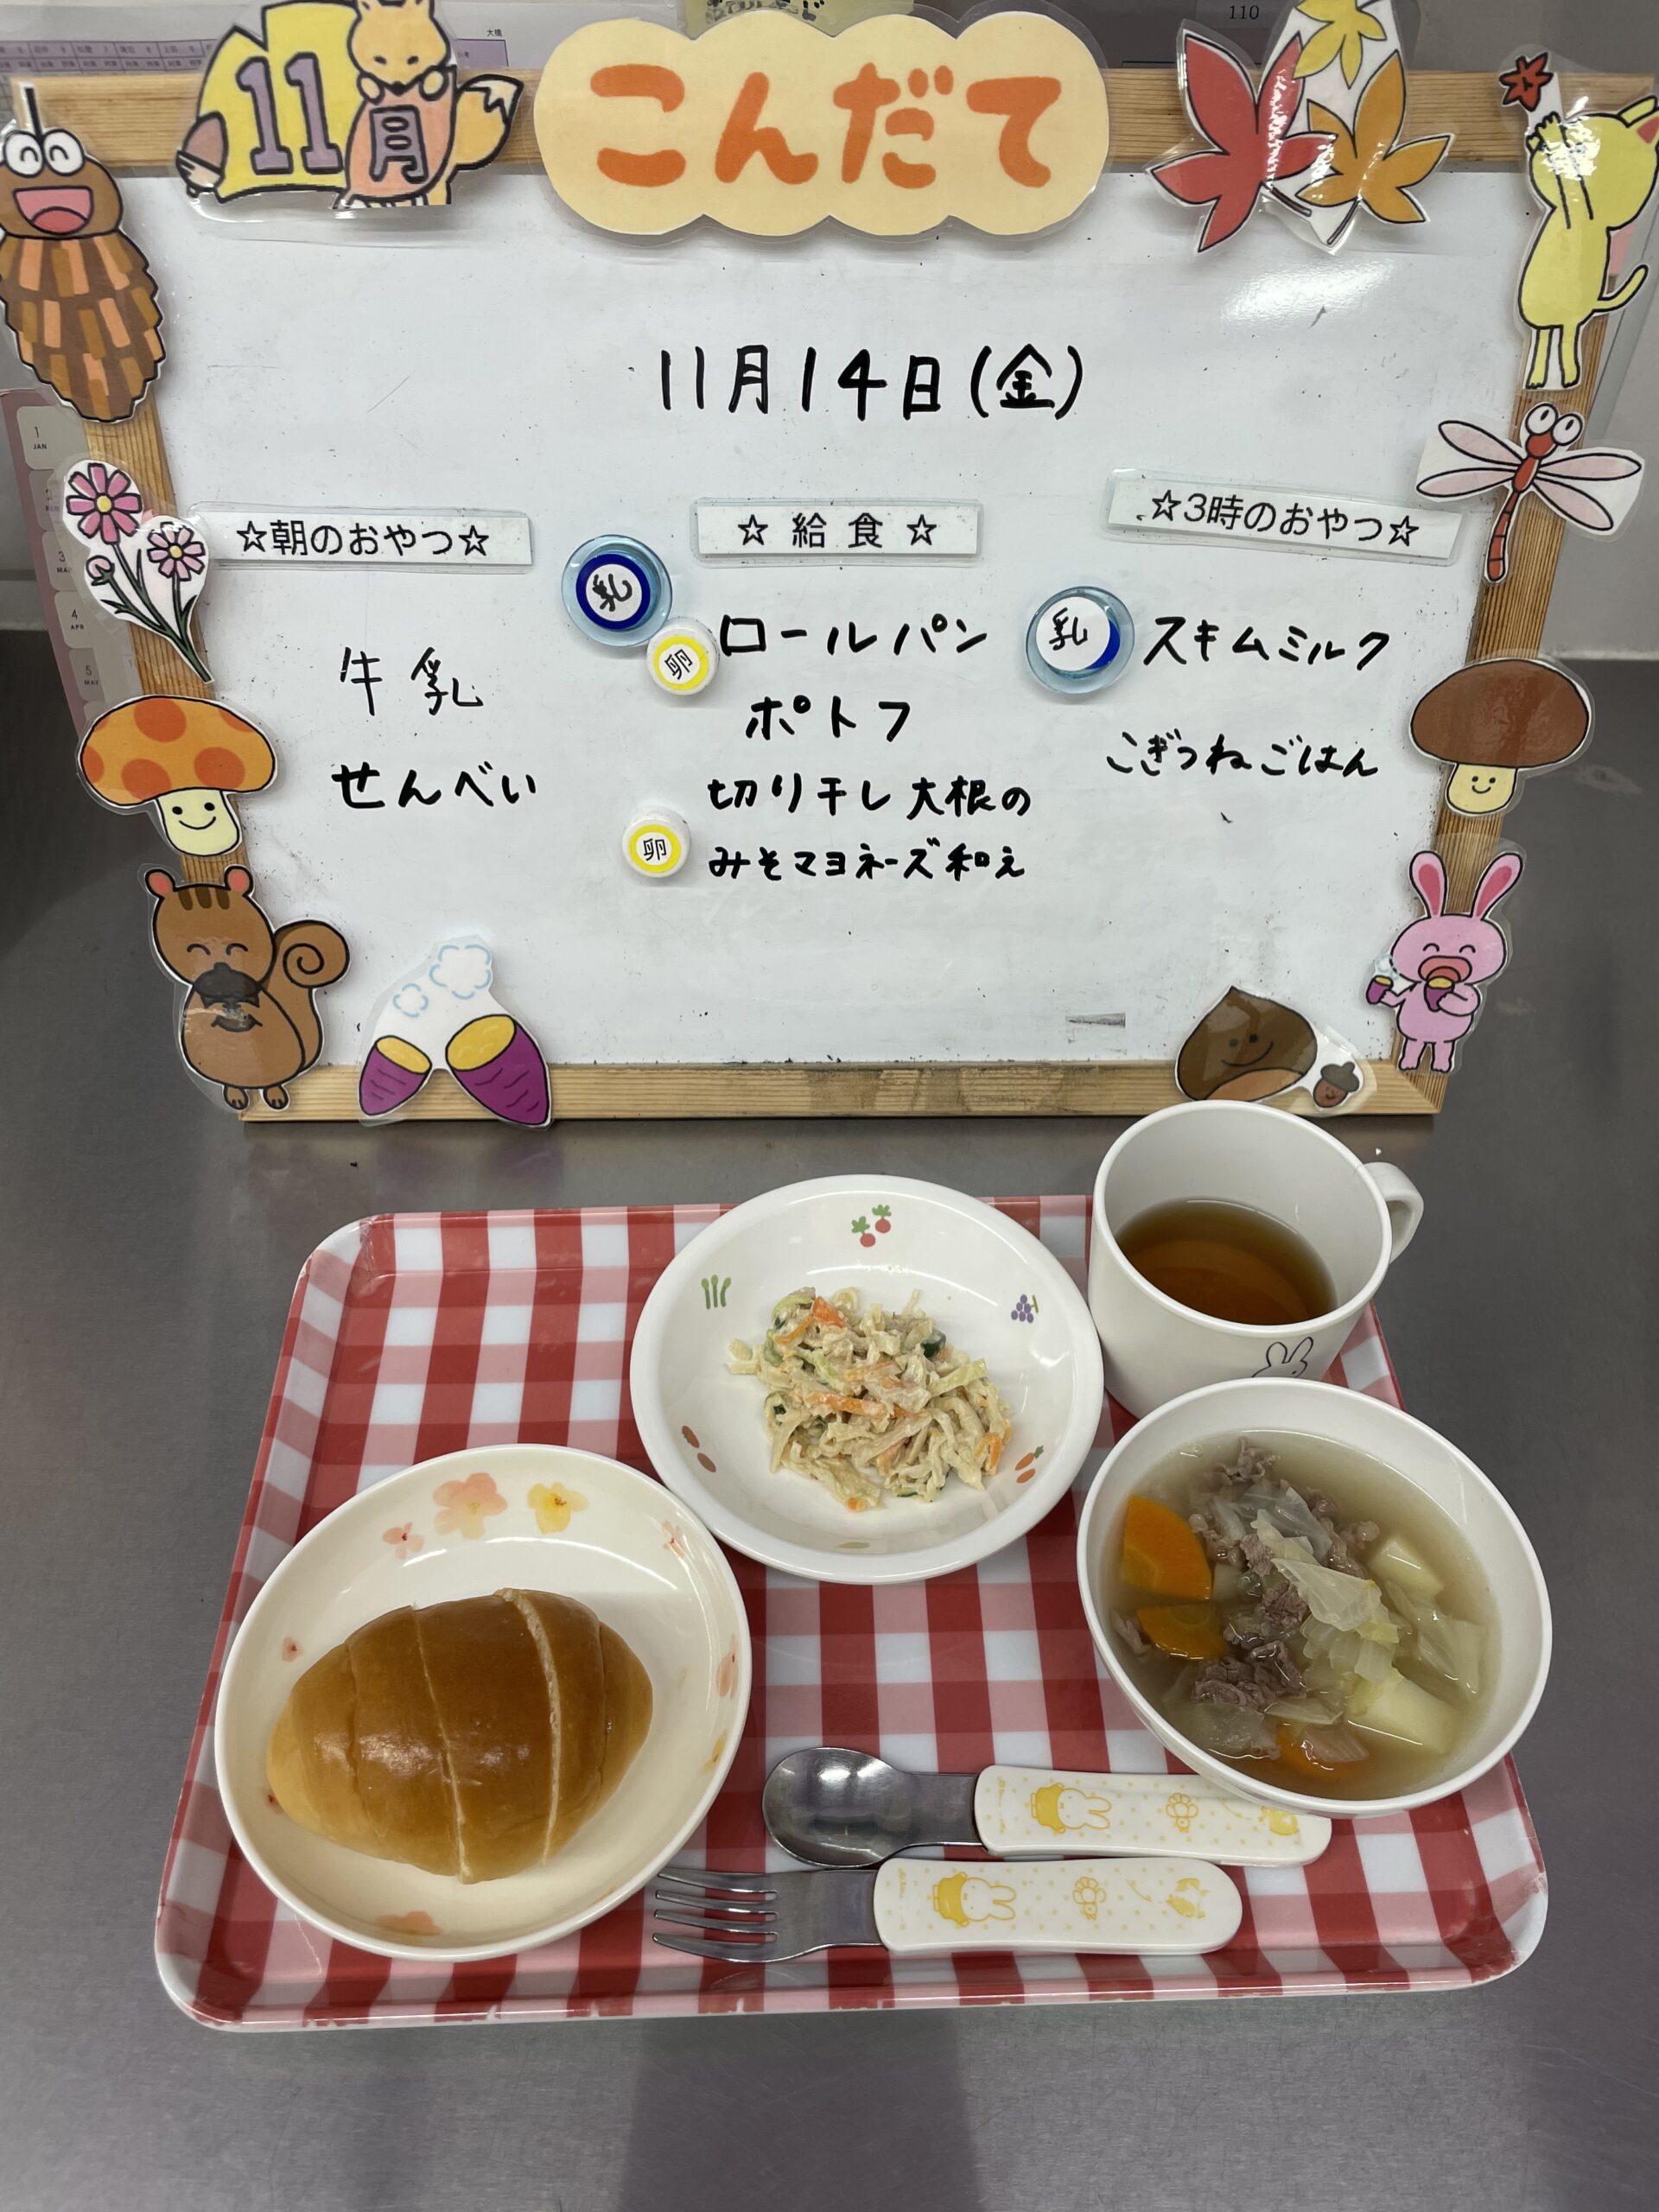 11月
こんだて
110
11月14日(金)
☆朝のおやつ☆
牛乳
せんべい
☆給食☆
乳
卵
ロールパン
ポトフ
切り干し大根の
卵
みそマヨネーズ和え
☆3時のおやつ☆
乳
スキムミルク
こぎつねごはん
1
JAN
3
4
APR
5
MAY